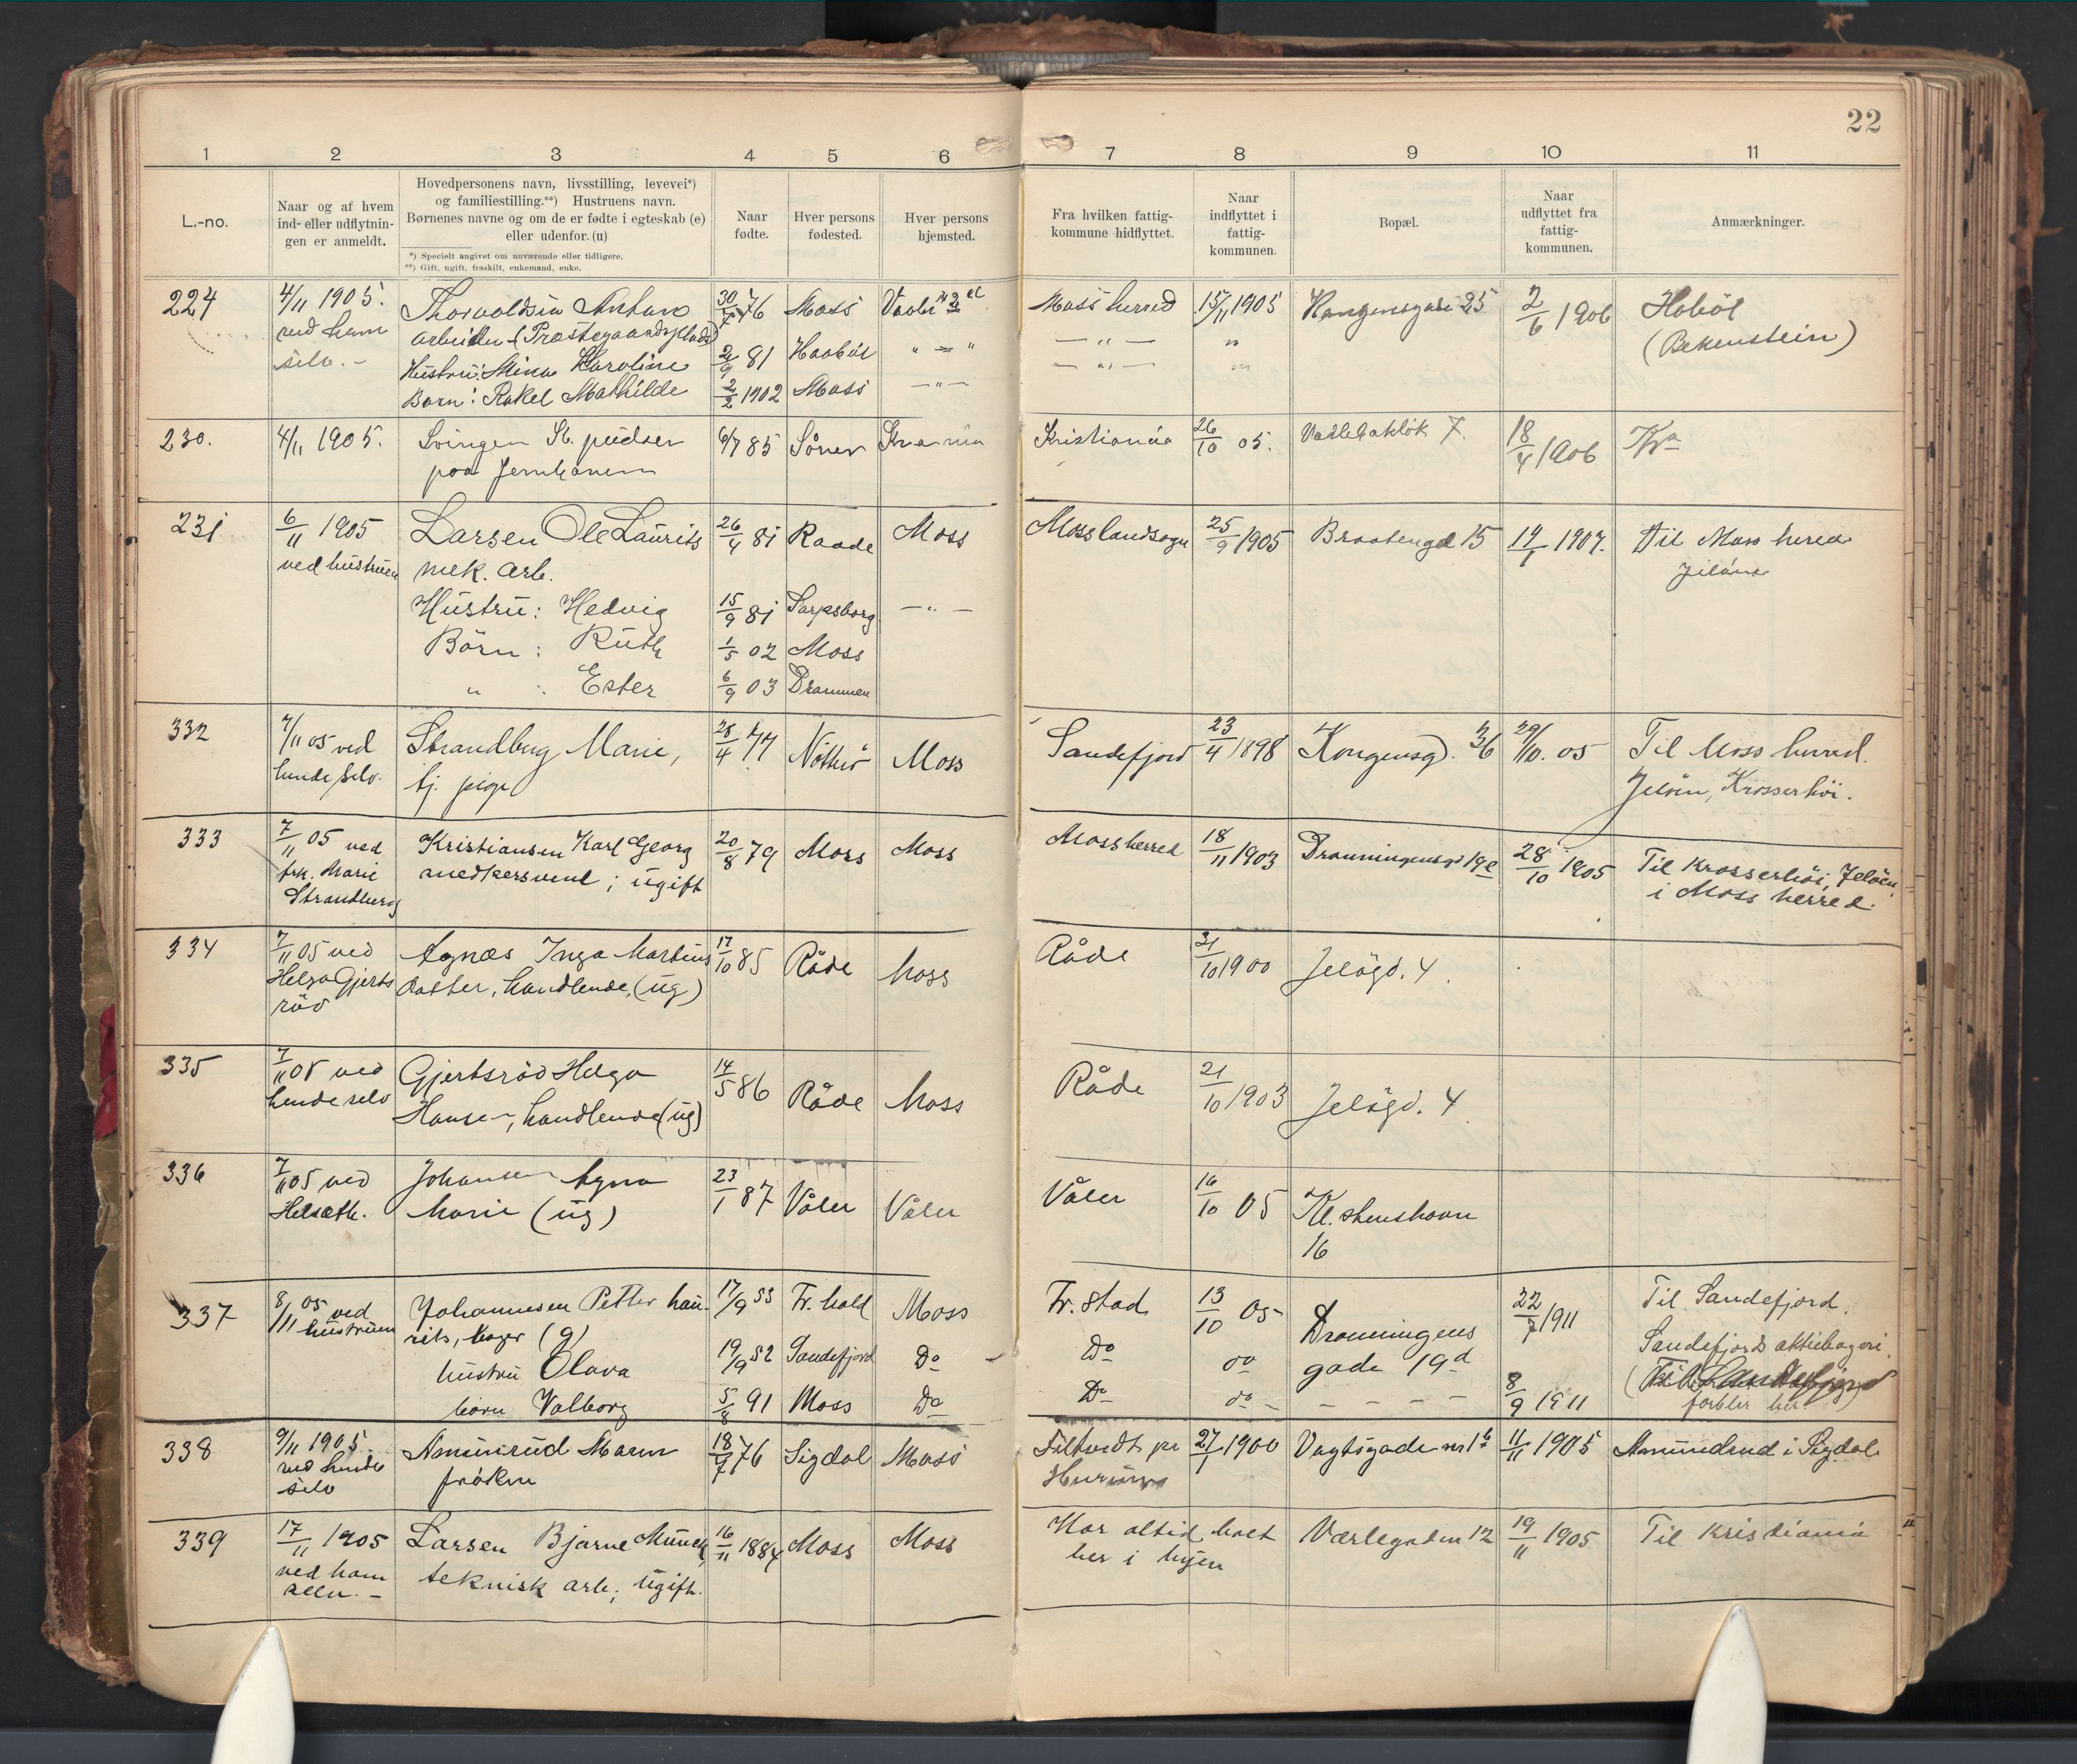 22
1 2 3 4 5 6 7 8 9 10 11
L.-no.
Naar og af hvem
ind- eller udflytnin-
gen er anmeldt.
Hovedpersonens navn, livsstilling, levevei*)
og familiestilling.**) Hustruens navn.
Børnenes navne og om de er fødte i egteskab (e)
eller udenfor. (u)
*) Specielt angivet om nuværende eller tidligere.
**) Gift, ugift, fraskilt, enkemand, enke.
Naar
fødte.
Hver persons
fødested.
Hver persons
hjemsted.
Fra hvilken fattig-
kommune hidflyttet.
Naar
indflyttet i
fattig-
kommunen.
Bopæl.
Naar
udflyttet fra
fattig-
kommunen.
Anmærkninger.
224 4/11 1905. Thorvaldsen 30/7 76 Moss Moss herred 15/11 1905 25 2/6 1906 Høbøl
ved ham arbeider (Præstegaards — " — "
selv. — Hustru: Mina Karoline 2/9 81 Haabøl " — " — " —
Barn: Rakel Mathilde 2/2 1902 Moss — " —
230. 4/11 1905. Svingen St. pudser 6/7 85 Kristiania 26/10 05. 7. 18/4 1906 Kra
paa Jernbanen
231 6/11 1905 Larsen Ole Laurits 26/4 81 Raade Moss Moss landsogn 25/9 1905 Braatengd 15 1907. Til Moss herred
ved hustruen mek. arb. Jeløen
Hustru: Hedvig 15/9 81 Sarpsborg — " —
Börn: Ruth 1/5 02 Moss
" : Ester 6/9 03 Drammen
332 7/11 05 ved Strandberg Marie, 28/4 77 Nøtterö Moss Sandefjord 23/4 1898 Kongensg. 36 29/10. 05 Til Moss herred.
hende selv. tj. pige Jeløen, Krosserhöi.
333 7/11 05 ved Kristiansen Karl Georg 20/8 79 Moss Moss Moss herred 18/11 1903 Dronningensgd 19 e 28/10 1905 Til Krosserhöi, Jeløen
frk. Marie snedkersvend; ugift i Moss herred.
Strandberg
334 7/11 05 ved Agnæs Inga Martins 17/10 85 Råde Moss Råde 31/10 1900 Jeløgd. 4.
Helga Gjerts datter, handlende, (ug)
röd
335 7/11 05 ved Gjertsröd Helga 14/5 86 Råde Moss Råde 21/10 1903 Jelögd. 4
hende selv Hansen, handlende (ug)
336 7/11 05 ved Johansen Agna 23/1 87 Våler Våler Våler 16/10 05 Kl. stenshavn
Helsæth. Marie (ug) 16
337 8/11 05 ved Johannesen Petter Lau- 17/9 53 Fr. hald Moss Fr. stad 13/10 05 Dronningens 22/7 1911 Til Sandefjord.
hustruen rits, bager (g) gade 19d Sandefjords aktiebageri.
hustru Olava 19/9 52 Sandefjord Do Do do
barn Valborg 5/8 91 Moss Do Do do — — — — 8/9 1911 forblir her
338 9/11 1905 Amunrud Maren 18/7 76 Sigdal Moss Filtvedt pr 27/1 1900 Vogtsgade nr 16 11/11 1905 Amundrud i Sigdal
ved hende frøken Hurum
selv
339 17/11 1905 Larsen Bjarne Munch, 16/11 1884 Moss Moss Har altid boet Værlegaden 12 19/11 1905 Til Kristiania
ved ham teknisk arb; ugift. her i byen
selv. —